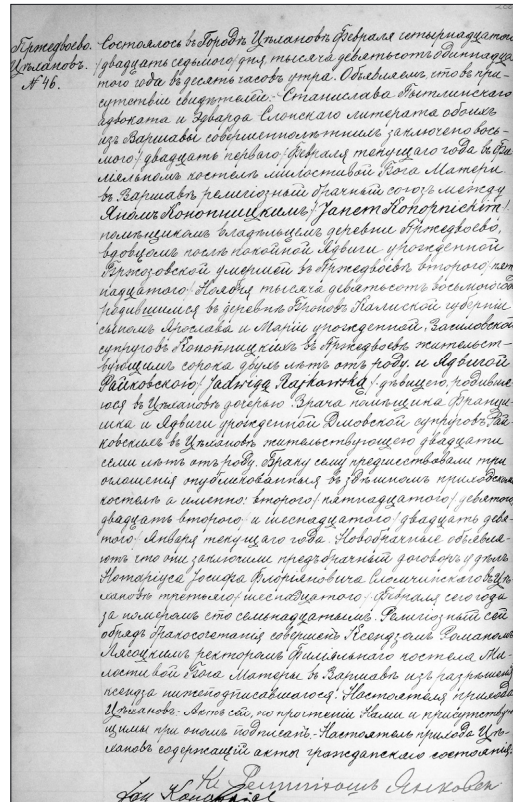 Пржедвоево.
Цѣхановъ.
№ 46.
Состоялось въ Городѣ Цѣхановѣ Февраля четырнадцатого
/двадцать седьмого/ дня, тысяча девятьсотъ одиннадца
того года въ десять часовъ утра. Объявляемъ, что въ при-
сутствіи свидѣтелей: Станислава Пытлинскаго
адвоката и Эдварда Слонскаго литерата обоихъ
изъ Варшавы совершеннолѣтнихъ заключенъ вось-
мого /двадцать перваго/ Февраля текущаго года въ Фи
ліяльномъ костелѣ Милостивой Бога Матери
въ Варшавѣ религіозный брачный союзъ между
Яномъ Конопницкимъ /Janem Konopnickim/
помѣщикомъ владѣльцемъ деревни Пржедвоево,
вдовцомъ послѣ покойной Ядвиги урожденной
Бржозовской умершей въ Пржедвоевѣ второго /пят
надцатого/ Ноября тысяча девятьсотъ восьмого года
родившимся въ деревнѣ Броновъ Калиской губерніи
сыномъ Ярослава и Маріи урожденной Василовской
супруговъ Конопницкихъ въ Пржедвоевѣ жительст-
вующимъ сорока двухъ лѣтъ отъ роду, и Ядвигой
Райковскою /Jadwigą Rajkowską/ дѣвицею, родивше
юся въ Цѣхановѣ дочерью Врача помѣщика Францы-
шка и Ядвиги урожденной Дмовской супруговъ Рай
ковскихъ въ Цѣхановѣ жительствующею двадцати
семи лѣтъ отъ роду. Браку сему предшествовали три
оглашенія опубликованныя въ здѣшномъ приходскомъ
костелѣ а именно: второго /пятнадцатого/ девятого
двадцать второго/ и шестнадцатого /двадцать девя-
того/ Января текущаго года. Новобрачные объявля-
ютъ что они заключили предъбрачный договоръ у
Нотаріуса Іосифа Флоріяновича Сломчинскаго въ Цѣ
хановѣ третьяго /шестнадцатого/ Февраля сего года
за номеромъ сто семьнадцатымъ. Религіозный сей
обрядъ бракосочетанія совершенъ Ксендзомъ Романомъ
ректоромъ Филіяльнаго костела Ми-
лостивой Бога Матери въ Варшавѣ изъ разрѣшенія
ксендза нижеподписавшагося Настоятеля прихода
Цѣхановъ. Актъ сей, по прочтеніи Нами и присутству-
щимы при ономъ подписанъ. Настоятель прихода Цѣ-
хановъ содержащій акты гражданскаго состоянія.
Jan Konopnicki